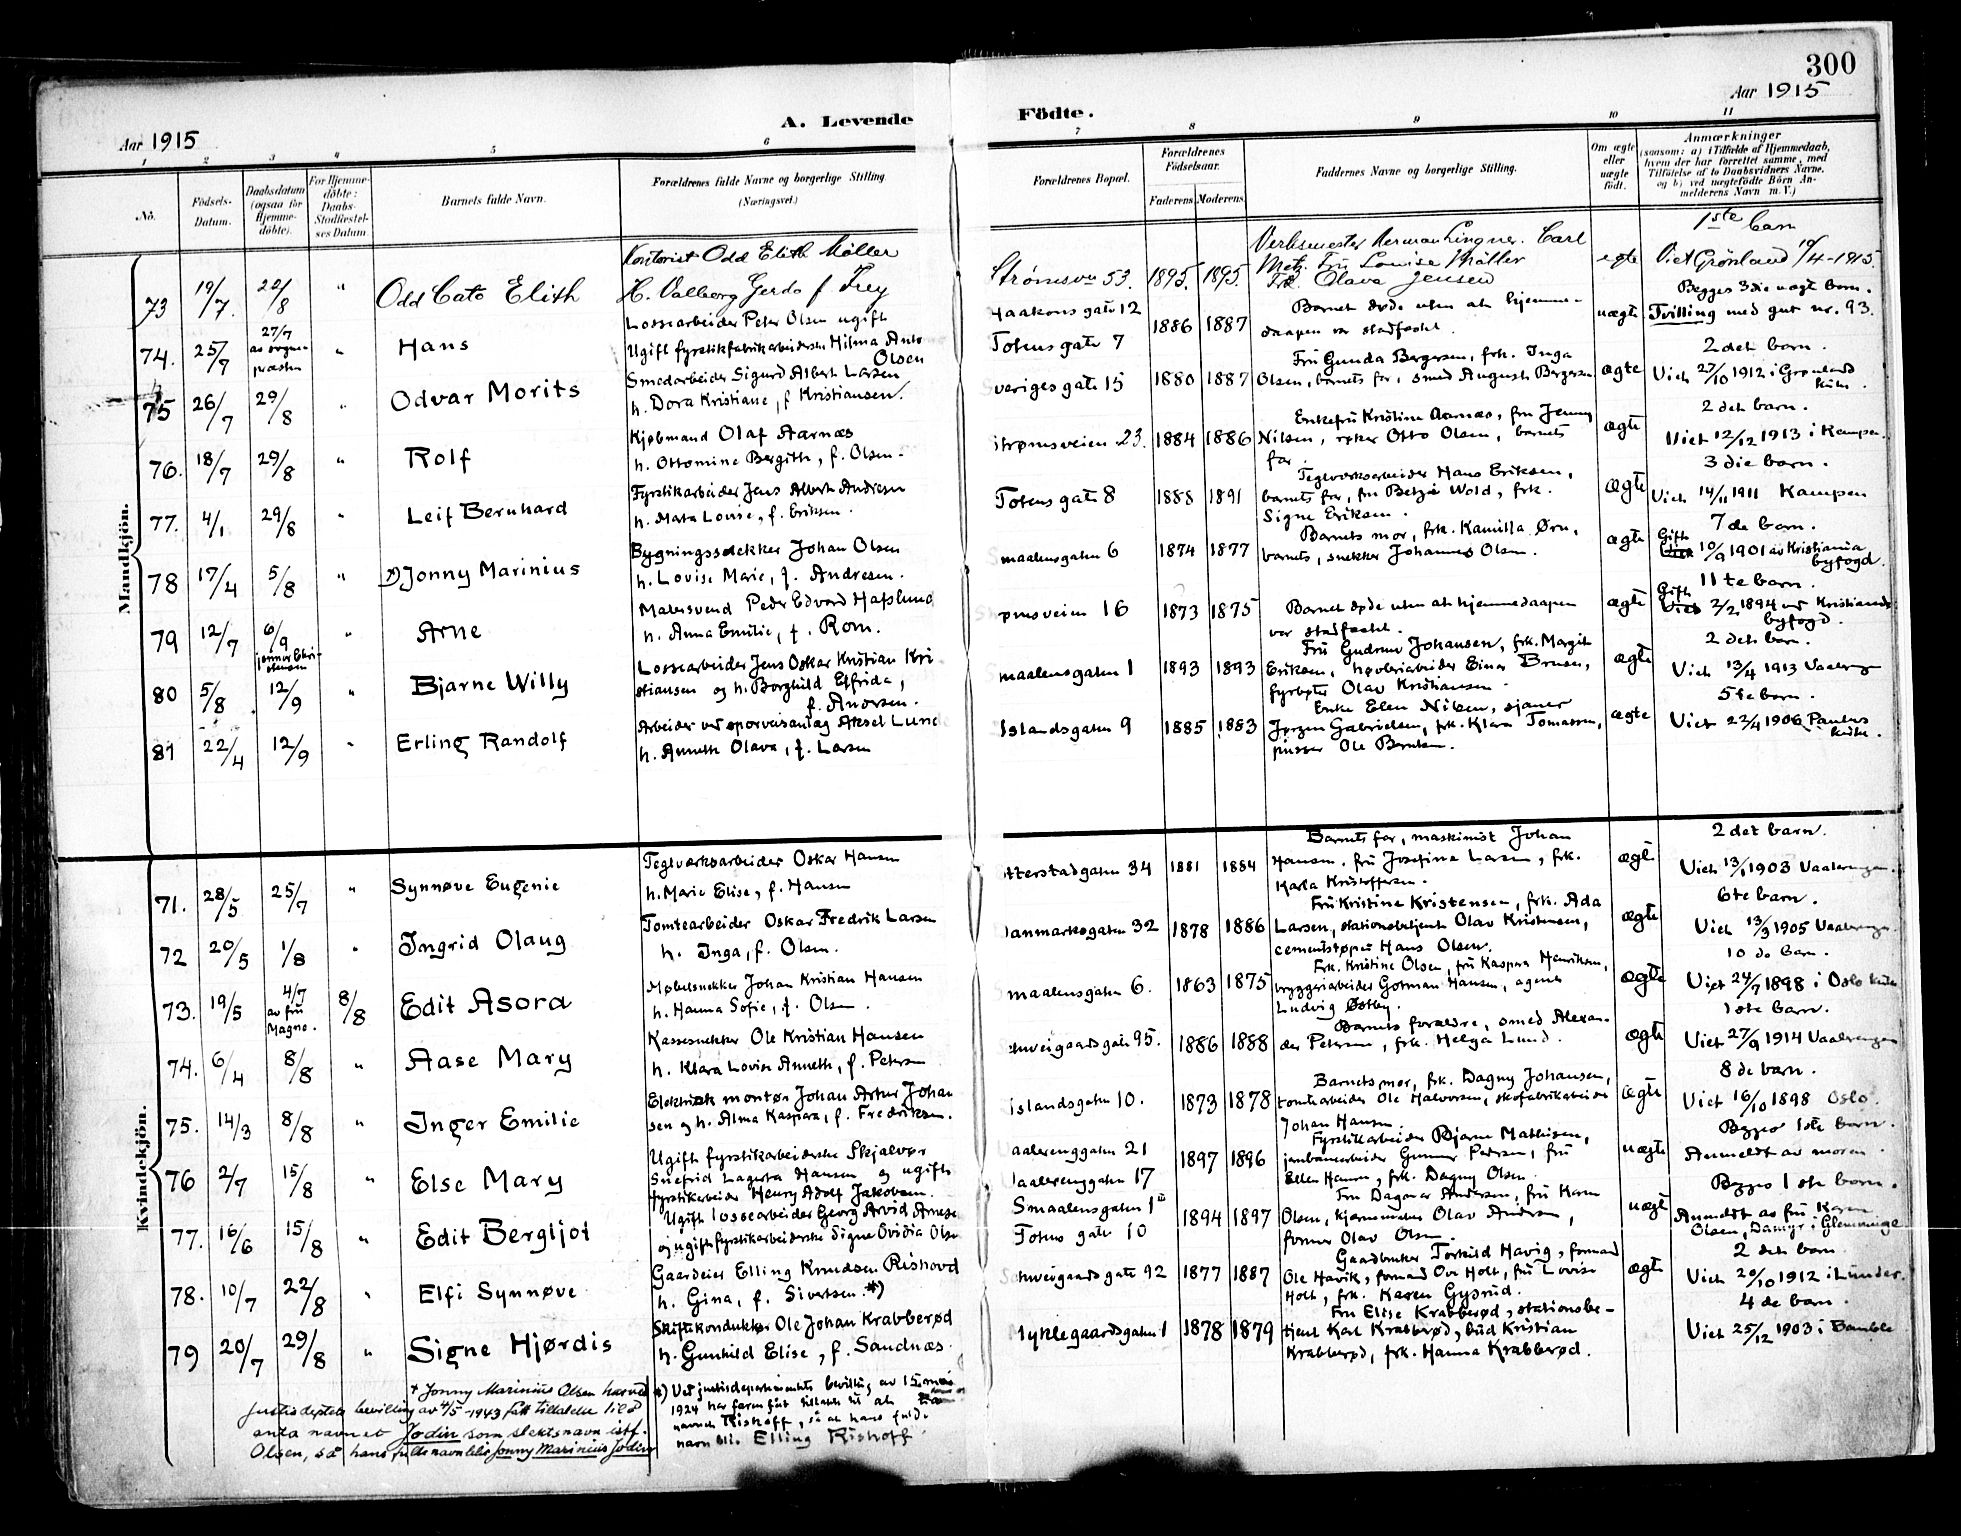 300
Aar 1915
Aar 1915
A. Levende
Födte.
1 2 3 4 5 6 7 8 9 10 11
No.
Födsels-Datum.
Daabsdatum (ogsaa for Hjemmedöbte).
For Hjemmedöbte: Daabs-Stadfæstelses Datum
Barnets fulde Navn.
Forældrenes fulde Navne og borgerlige Stilling. (Næringsvei.)
Forældrenes Bopæl.
Forældrenes Födselsaar.
Faderens. Moderens.
Faddernes Navne og borgerlige Stilling.
Om ægte eller uægte födt.
Anmærkninger
(saasom: a) i Tilfælde af Hjemmedaab, hvem der har forrettet samme, med Tilföielse af to Daabsvidners Navne, og b) ved uægtefödte Börn Anmelderens Navn m. V.)
Mandkjön.
73 19/7. 22/8 " Odd Cato Elith
Kontorist Odd Elith Møller
H. Valborg Gerda f Frey
Strømsvn 53. 1895. 1895.
Verksmester Herman Lingner. Carl
Metz. Fru Louise Møller
Frk. Olava Jensen
egte
1ste barn
Viet Grønland 10/4-1915.
74. 25/7 27/7 av sogne-præsten " Hans
Lossearbeider Peter Olsen ugift
Ugift fyrstikfabrikarbeiderske Hilma Anto
Olsen
Haakons gate 12
Totens gate 7
1886 1887
Barnet døde uten at hjemme-
daapen var stadfæstet.
uægte
Begges 3die uægte barn.
Tvilling med gut nr. 93.
75 26/7 29/8 " Odvar Morits
Smedarbeider Sigurd Albert Larsen
h. Dora Kristiane, f Kristiansen.
Sveriges gate 15 1880 1887
Fru Gunda Bergersen, frk. Inga
Olsen, barnets far, smed August Bergersen
ægte
2det barn.
Viet 27/10 1912 i Grønlands
kirke.
76. 18/7 29/8 " Rolf
Kjøbmand Olaf Aarnæs
h. Ottomine Bergith, f. Olsen.
Strømsveien 23. 1884 1886
Enkefru Kristine Aarnæs, fru Jenny
Nilsen, Otto Olsen, barnets
far.
ægte
2det barn.
Viet 12/12 1913 i Kampen.
77. 4/1 29/8 " Leif Bernhard
Fyrstikarbeider Jens Albert Andresen
h. Marta Lovise, f. Eriksen.
Totens gate 8 1888 1891
Teglverksarbeider Hans Eriksen,
barnets far, fru Betzie Wold, frk.
Signe Eriksen.
ægte
3die barn.
Viet 14/11 1911 Kampen
78 17/4 5/8 " *) Jonny Marinius
Bygningssnekker Johan Olsen
h. Lovise Marie, f. Andresen.
Smaalensgaten 6 1874 1877
Barnets mor, frk. Kamilla Ørn,
barnets, snekker Johannes Olsen.
ægte
7de barn.
Gift
Viet 10/9 1901 av Kristiania
byfogd.
79 12/7 6/9 " Arne
Malersvend Peder Edvard Hafslund
h. Anna Emilie, f. Rom.
Strømsveien 16 1873 1875
Barnet døde uten at hjemmedaapen
var stadfæstet.
ægte
11te barn.
Gift
Viet 2/2 1894 ved Kristiania
byfogd.
80 5/8 12/9 " Bjarne Willy
Lossearbeider Jens Oskar Kristian Kri
stiansen og h. Borghild Elfrida,
f. Andersen.
Smaalensgaten 1 1893 1893
Fru Gudrun Johansen, frk. Margit
Eriksen, høvleriarbeider Einar Bruun,
fyrbøter Olav Kristiansen.
ægte
2det barn.
Viet 13/4 1913 Vaaleren
81 22/4 12/9 " Erling Randolf
Arbeider ved sporveisanlæg Aksel Lunde
h. Anneth Olava, f. Larsen
Islandsgaten 9 1885 1883
Enke Elen Nilsen, sjauer
Jørgen Gabrielsen, frk. Klara Tomassen,
pusser Ole Berntsen.
ægte
5te barn.
Viet 22/4 1906 Paulus
kirke.
Kvindekjön.
71. 28/5 25/7 " Synnøve Eugenie
Teglverksarbeider Oskar Hansen
h. Marie Elise, f. Hansen
Etterstadgaten 34 1881 1884
Barnets far, maskinist Johan
Hansen, fru Josefine Larsen, frk.
Karla Kristoffersen.
ægte
2det barn.
Viet 13/1 1903 Vaalerengen.
72 20/5 1/8 " Ingrid Olaug
Tomtearbeider Oskar Fredrik Larsen
h. Inga, f. Olsen.
Danmarksgaten 32 1878 1886
Fru Kristine Kristensen, frk. Ada
Larsen, stationsbetjent Olav Kristensen,
cementstøper Hans Olsen.
ægte
6te barn.
Viet 13/3 1905 Vaalerengen
73. 19/5 4/7 av fru Magno. 8/8 Edit Asora
Møbelsnekker Johan Kristian Hansen
h. Hanna Sofie, f. Olsen.
Smaalensgaten 6. 1863 1875
Frk. Kristine Olsen, fru Kaspara Henriksen,
bryggeriarbeider Gotman Hansen, agent
Ludvig Østby.
ægte
10de barn.
Viet 24/7 1898 i Oslo kirke
74. 6/4 8/8 " Aase Mary
Kassesnekker Ole Kristian Hansen
h. Klara Lovise Anneth, f. Petersen
Schweigaardsgate 95. 1886 1888
Barnets forældre, smed Alexan-
der Petersen, frk. Helga Lund.
ægte
1ste barn.
Viet 27/9 1914 Vaalerengen
75. 14/3 8/8 " Inger Emilie
Elektrisk montør Johan Artur Johan
sen og h. Alma Kaspara, f. Fredriksen.
Islandsgaten 10. 1873 1878
Barnets mor, frk. Dagny Johansen,
tomtearbeider Ole Halvorsen, skofabrikarbeider
Johan Hansen
ægte
8de barn.
Viet 16/10 1898 Oslo.
76 2/7 15/8 " Else Mary
Ugift fyrstikarbeiderske Skjalvør
Snefrid Lagerta Hansen og ugift
fyrstikarbeider Henry Adolf Jakobsen.
Vaalerenggaten 21
Vaalerenggaten 17
1897 1896
Fyrstikarbeider Bjarne Mathisen,
jernbanearbeider Gunnar Pedersen, fru
Ellen Hansen, frk. Dagny Olsen
uægte
Begges 1ste barn.
Anmeldt av moren.
77. 16/6 15/8 " Edit Bergljot
Ugift lossearbeider Georg Arvid Arnesen
og ugift fyrstikarbeiderske Signe Ovidia Olsen
Smaalensgaten 1
Totens gate 10
1894 1897
Fru Dagmar Andersen, fru Karen
Olsen, Olav Andersen,
former Olav Olsen.
uægte
Begges 1ste barn.
Anmeldt av fru Karen
Olsen, Damyr i Glemminge
78. 10/7 22/8 " Elfi Synnøve
Gaardeier Elling Knudsen Rishovd
h. Gina, f. Sivertsen. *)
Schweigaards gate 92 1877 1887
Gaardbruker Torkild Havig, formand
Ole Havik, formand Ove Holt, fru Lovise
Holt, frk. Karen Gysrud.
ægte
2det barn
Viet 20/10 1912 i Lunder.
79 20/7 29/8 " Signe Hjørdis
Skiftekonduktør Ole Johan Krabberød
h. Gunhild Elise, f. Sandnæs.
Myklegaardsgaten 1 1878 1879
Fru Elise Krabberød, stationsbe-
tjent Karl Krabberød, bud Kristian
Krabberød, frk. Hanna Krabberød.
4de barn.
Viet 25/12 1903 i Bamble
* Jonny Marinius Olsen har ved
Justisdeptets bevilling av 4/5-1943 fått tillatelse til å
anta navnet Jodin som slektsnavn istf.
Olsen, så hans fulle navn blir Jonny Marinius Jodin
*) Ved justisdepartementets bevilling av 15 mai
1924 har faren fåt tilladelse til at
navnet Rishoff, så at hans fulde
navn bli. Elling Rishoff